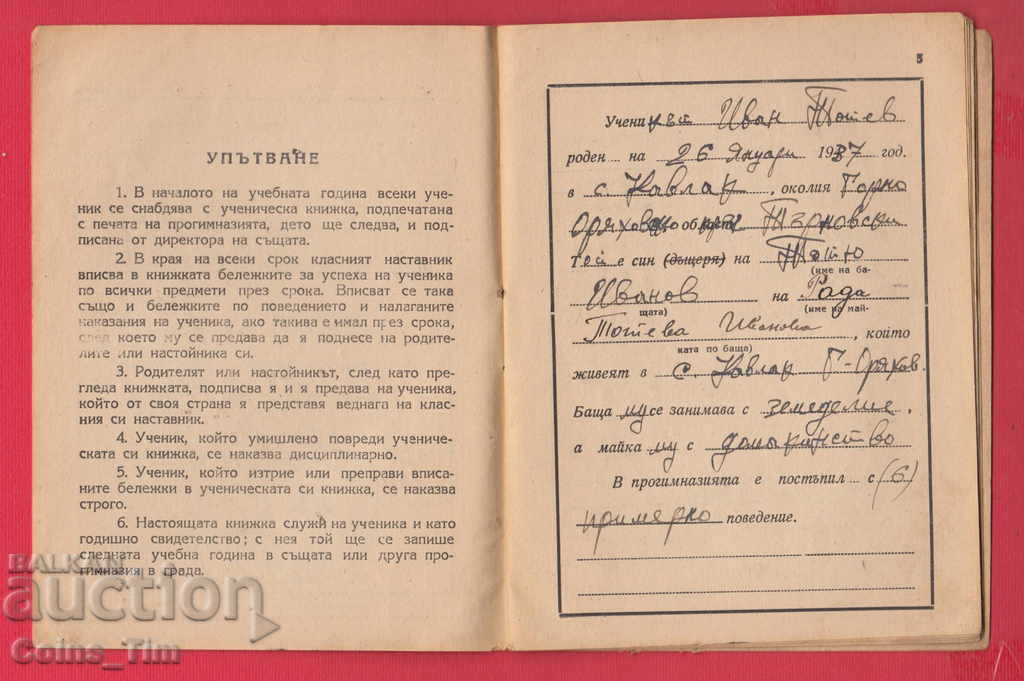 УПЪТВАНЕ
1. В началото на учебната година всеки уче-
ник се снабдява с ученическа книжка, подпечатана
с печата на прогимназията, дето ще следва, и под-
писана от директора на същата.
2. В края на всеки срок класният наставник
вписва в книжката бележките за успеха на ученика
по всички предмети през срока. Вписват се така
също и бележките по поведението и налаганите
наказания на ученика, ако такива е имал през срока,
след което му се предава да я поднесе на родите-
лите или настойника си.
3. Родителят или настойникът, след като пре-
гледа книжката, подписва я и я предава на ученика,
който от своя страна я представя веднага на класни-
я си наставник.
4. Ученик, който умишлено повреди учениче-
ската си книжка, се наказва дисциплинарно.
5. Ученик, който изтрие или преправи вписа-
ните бележки в ученическата си книжка, се наказва
строго.
6. Настоящата книжка служи на ученика и като
годишно свидетелство; с нея той ще се запише
следната учебна година в същата или друга про-
гимназия в града.
5
Ученикът Иван Тотев
роден на 26 Януари 1937 год.
в с. Кавлак, околия Горно
Оряховско област Търновски
той е син (дъщеря) на Тотю
(име на ба-
Иванов на Рада
щата) (име на май-
Тотева Иванова, който
ката по баща)
живеят в с. Кавлак Г-Оряхов.
Баща му се занимава с земеделие,
а майка му с домакинство
В прогимназията е постъпил с (6)
примерно поведение.
BALKAN
auction
Coins_Tim